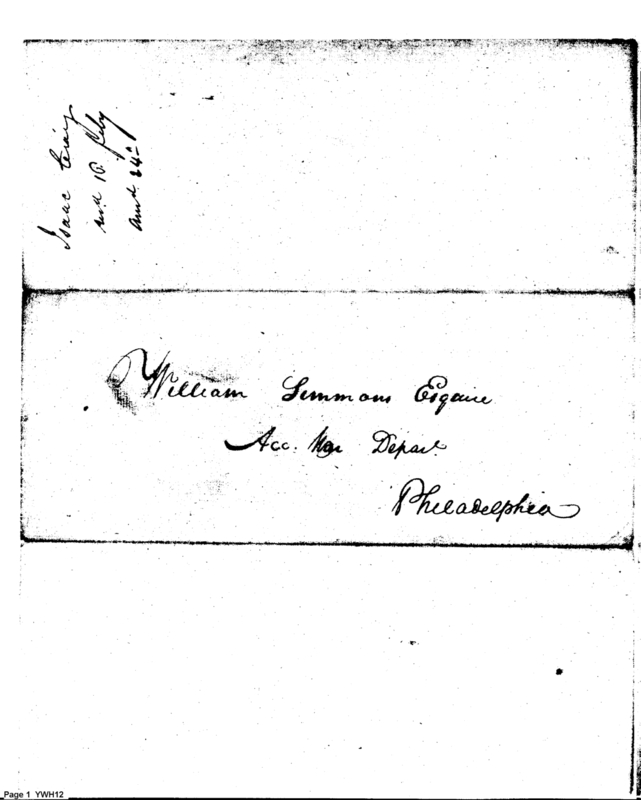 Isaac Craig
recd 18 Feby
ansd. 24th
William Simmons Esquire
Acc. War Depart.
Philadelphia
Page 1 YWH12